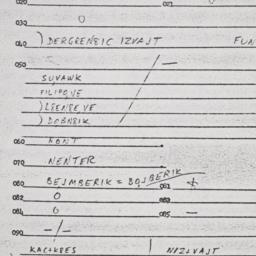 020 021
032 0
040 ) DERGRENSIC IZVAJT FUN
050 /—
SUVAWK
FILIPQVE
) LSENSE, VE
) DOBNSIK /
060 NONT
070 NENTER
080 BEJMBERIK = BOJBERIK 061 +
082 0
084 0 085 —
090 —/—
KACTKBES NIZIVAJT